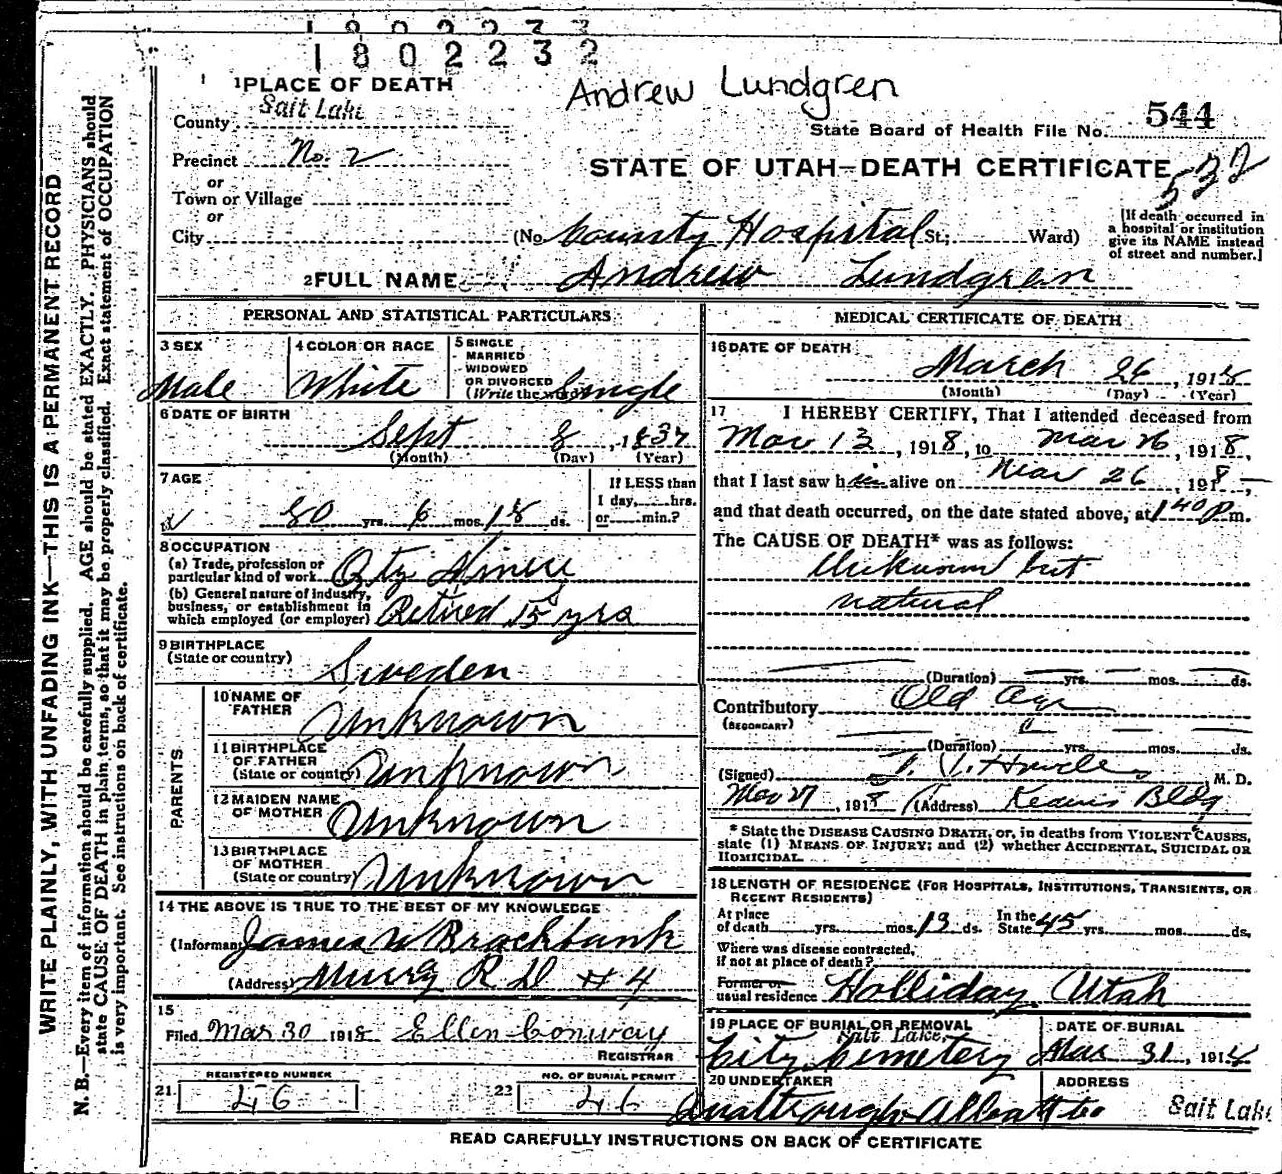 1802232
Andrew Lundgren
1 PLACE OF DEATH
County Salt Lake
State Board of Health File No. 544
Precinct No. 2
532
or
Town or Village
or
City
STATE OF UTAH—DEATH CERTIFICATE
(No. County Hospital St; Ward)
[If death occurred in
a hospital or institution
give its NAME instead
of street and number.]
2 FULL NAME Andrew Lundgren
PERSONAL AND STATISTICAL PARTICULARS
3 SEX
Male
4 COLOR OR RACE
White
5 SINGLE
MARRIED
WIDOWED
OR DIVORCED
(Write the word) Single
6 DATE OF BIRTH
Sept 8, 1837
(Month) (Day) (Year)
7 AGE
80 yrs. 6 mos. 18 ds.
If LESS than
1 day, hrs.
or min.?
8 OCCUPATION
(a) Trade, profession or
particular kind of work
(b) General nature of industry,
business, or establishment in
which employed (or employer) Retired 15 yrs
9 BIRTHPLACE
(State or country) Sweden
PARENTS
10 NAME OF
FATHER Unknown
11 BIRTHPLACE
OF FATHER
(State or country) Unknown
12 MAIDEN NAME
OF MOTHER Unknown
13 BIRTHPLACE
OF MOTHER
(State or country) Unknown
14 THE ABOVE IS TRUE TO THE BEST OF MY KNOWLEDGE
(Informant) James W Brockbank
(Address) Murray R D #4
15
Filed Mar 30 1918 Ellen Conway
REGISTRAR
REGISTERED NUMBER
21 46
NO. OF BURIAL PERMIT
22 46
MEDICAL CERTIFICATE OF DEATH
16 DATE OF DEATH
March 26, 1918
(Month) (Day) (Year)
17 I HEREBY CERTIFY, That I attended deceased from
Mar 13, 1918, to Mar 26, 1918,
that I last saw him alive on Mar 26 1918,
and that death occurred, on the date stated above, at 1 40 P m.
The CAUSE OF DEATH* was as follows:
Unknown but
natural
(Duration) yrs. mos. ds.
Contributory Old Age
(SECONDARY)
(Duration) yrs. mos. ds.
(Signed) M. D.
Mar 27, 1918 (Address) Kearns Bldg
* State the DISEASE CAUSING DEATH, or, in deaths from VIOLENT CAUSES,
state (1) MEANS OF INJURY; and (2) whether ACCIDENTAL, SUICIDAL OR
HOMICIDAL.
18 LENGTH OF RESIDENCE (FOR HOSPITALS, INSTITUTIONS, TRANSIENTS, OR
RECENT RESIDENTS)
At place
of death yrs. mos. 13 ds. In the
State 45 yrs. mos. ds.
Where was disease contracted,
if not at place of death?
Former or
usual residence Holliday, Utah
19 PLACE OF BURIAL OR REMOVAL
Salt Lake
City Cemetery
DATE OF BURIAL
Mar 31, 1918
20 UNDERTAKER
ADDRESS
Salt Lake
READ CAREFULLY INSTRUCTIONS ON BACK OF CERTIFICATE
WRITE PLAINLY, WITH UNFADING INK—THIS IS A PERMANENT RECORD
N. B.—Every item of information should be carefully supplied. AGE should be stated EXACTLY. PHYSICIANS should
state CAUSE OF DEATH in plain terms, so that it may be properly classified. Exact statement of OCCUPATION
is very important. See instructions on back of certificate.